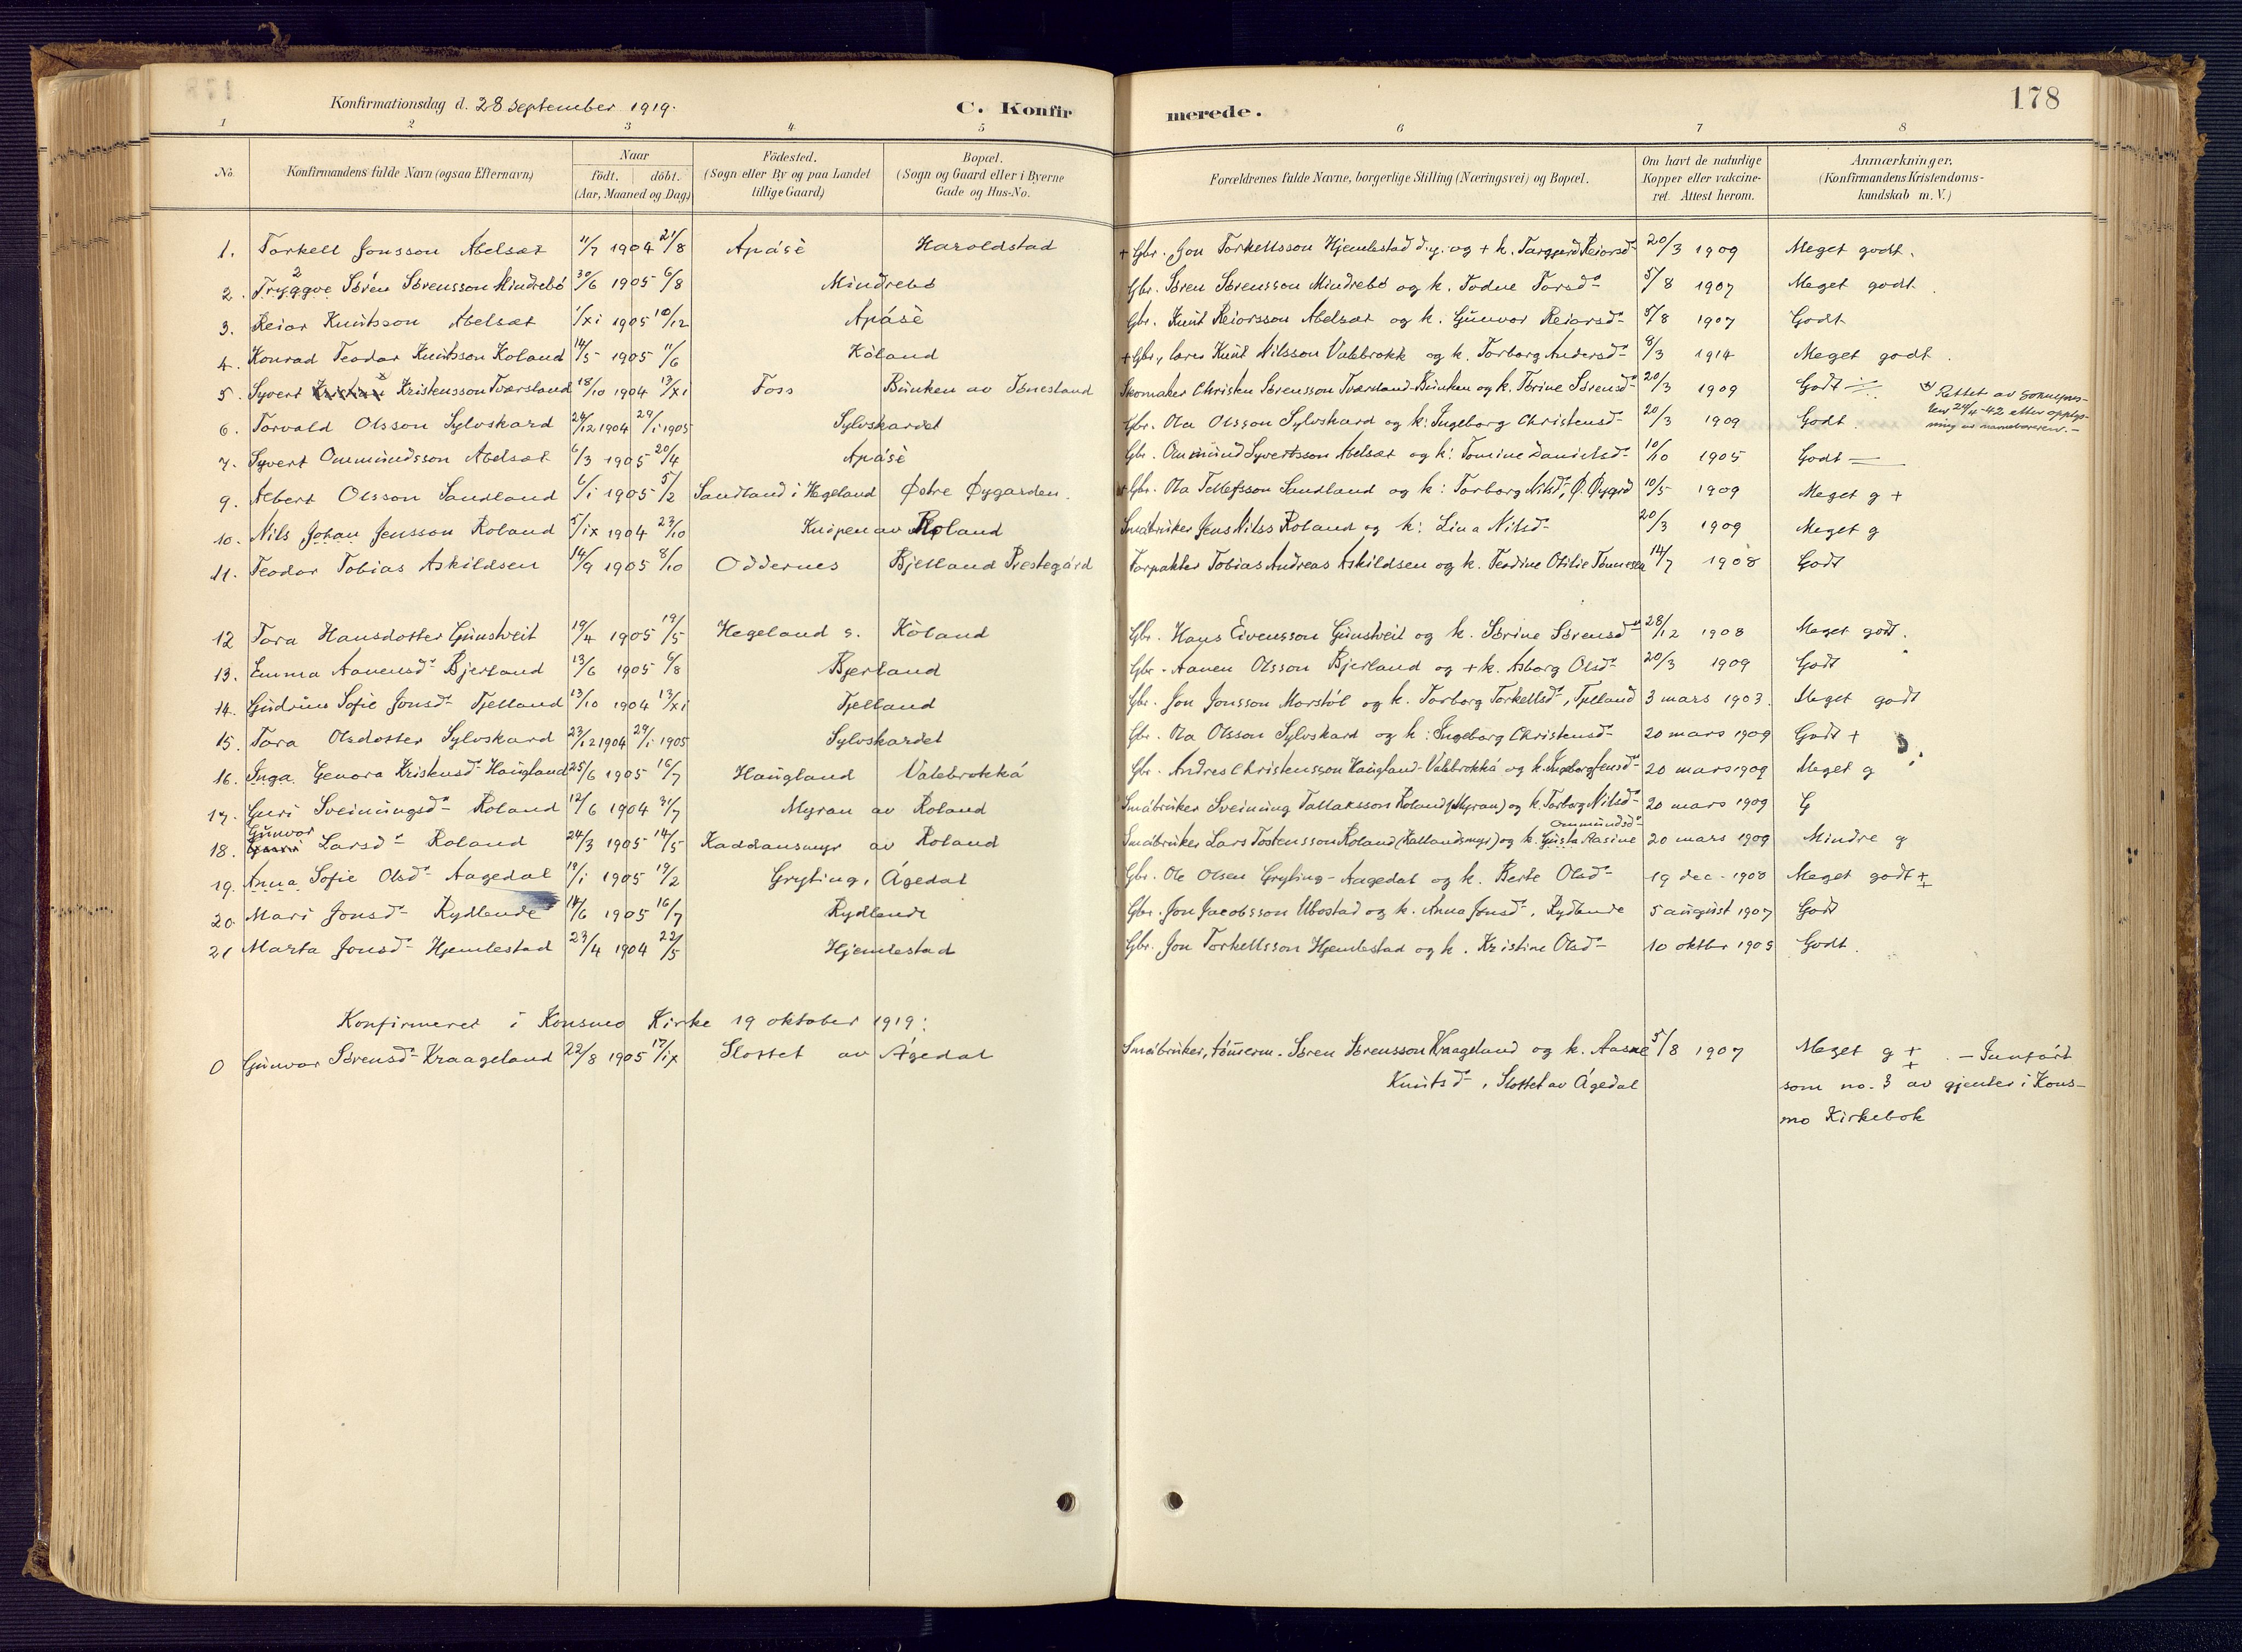 Konfirmationsdag d. 28 september 1919. C. Konfirmerede. 178
1 2 3 4. 5 6 7 8
No. Konfirmandens fulde Navn (ogsaa Efternavn) Naar födt. döbt. (Aar, Maaned og Dag) Födested. (Sogn eller By og paa Landet tillige Gaard) Bopæl. (Sogn og Gaard eller i Byerne Gade og Hus-No. Forældrenes fulde Navne, borgerlige Stilling (Næringsvei) og Bopæl. Om havt de naturlige Kopper eller vakcineret. Attest herom. Anmærkninger. (Konfirmandens Kristendomskundskab m. V.)
1. Torkell Jonsson Abelsæt 11/7 1904 21/8 Apåsè Haroldstad + Gbr. Jon Torkellsson Hjemlestad d.y. og + k. Targjerd Reiorsd. 20/3 1909 Meget godt.
2. Tryggve 2 Søren Sørensson Mindrebø 30/6 1905 6/8 Mindrebø Gbr. Søren Sørensson Mindrebø og k. Todne Torsd. 5/8 1907 Meget godt.
3. Reior Knutsson Abelsæt 1/xi 1905 10/12 Apåsè Gbr. Knut Reiorsson Abelsæt og k. Gunvor Reiorsd. 5/8 1907 Godt
4. Konrad Teodor Knutsson Koland 14/5 1905 11/6 Kòland + Gbr, lærer Knut Nilsson Valebrokk og k. Torborg Andersd. 8/3 1914 Meget godt.
5. Syvert Kristensson Tværsland 18/10 1904 13/xi Foss Bunken av Tønesland Skomaker Christen Sørensson Tværsland-Bunken og k. Tørine Sørensd. 20/3 1909 Godt Rettet av sognepresten 24/11-42 etter opplysning av navnebæreren.-
6. Torvald Olsson Sylvskard 24/12 1904 29/1 1905 Sylvskardet Gbr. Ola Olsson Sylvskard og k: Ingeborg Christensd. 20/3 1909 Godt.
7. Syvert Ommundsson Abelsæt 6/3 1905 20/4 Apåsè Gbr. Ommund Syvertsson Abelsæt og k: Tomine Danielsd. 10/10 1905 Godt
9. Albert Olsson Sandland 6/1 1905 5/2 Sandland i Hegeland Østre Øygarden. Gbr. Ola Tellefsson Sandland og k: Torborg Nilsd., Ø. Øygrd 10/5 1909 Meget g +
10. Nils Johan Jensson Roland 5/ix 1904 23/10 Knipen av Roland Småbruker Jens Nilss Roland og k: Lina Nilsd. 20/3 1909 Meget g
11. Teodor Tobias Askildsen 14/9 1905 8/10 Oddernes Bjelland Prestegård Forpakter Tobias Andreas Askildsen og k. Teodine Otilie Tønnesen 14/7 1908 Godt
12 Tora Hansdotter Gunstveit 19/4 1905 19/5 Hegeland s. Kòland Gbr. Hans Eivensson Gunstveit og k. Sørine Sørensd. 28/12 1908 Meget godt.
13. Emma Aanensd. Bjerland 13/6 1905 6/8 Bjerland Gbr. Aanen Olsson Bjerland og + k. Asborg Olsd. 20/3 1909 Godt
14. Gudrun Sofie Jonsd. Tjelland 13/10 1904 13/xi Tjelland Gbr. Jon Jonsson Morstøl og k. Torborg Torkellsd., Tjelland 3 mars 1903. Meget godt
15. Tora Olsdotter Sylvskard 23/12 1904 29/1 1905 Sylvskardet Gbr. Ola Olsson Sylvskard og k: Ingeborg Christensd. 20 mars 1909 Godt +
16. Inga Genora Kristensd. Haugland 25/6 1905 16/7 Haugland Valebrokkå Gbr. Andres Christensson Haugland-Valebrokkå og k. Ingeborg Jensd. 20 mars 1909 Meget g
17. Guri Sveinungsd. Roland 12/6 1904 31/7 Myran av Roland Småbruker Sveinung Tallaksson Roland (Myran) og k. Torborg Nilsd. 20 mars 1909 G
18. Gunvor Larsd. Roland 24/3 1905 14/5 Kaddansmyr av Roland Småbruker Lars Tostensson Roland (Kallandsmyr) og k. Gusta Aasine Ommundsd. 20 mars 1909 Mindre g
19. Anna Sofie Olsd. Aagedal 19/1 1905 19/2 Gryting, Ågedal Gbr. Ole Olsen Gryting-Aagedal og k. Berte Olsd. 19 dec. 1908 Meget godt +
20. Mari Jonsd. Rydlende 14/6 1905 16/7 Rydlende Gbr. Jon Jacobsson Ubostad og k. Anna Jonsd., Rydlende 5 august 1907 Godt
21 Marta Jonsd. Hjemlestad 23/4 1904 22/5 Hjemlestad Gbr. Jon Torkellsson Hjemlestad og k. Kristine Olsd. 10 oktbr 1905 Godt.
Konfirmeret i Konsmo Kirke 19 oktober 1919:
0 Gunvor Sørensd. Kraageland 22/8 1905 17/ix Slottet av Ågedal Småbruker, tømrerm. Søren Sørensson Kraageland og k. Aasne 5/8 1907 Meget g + . - Innført
Knutsd., Slottet av Ågedal som no. 3 av gjenter i Kons-
mo Kirkebok